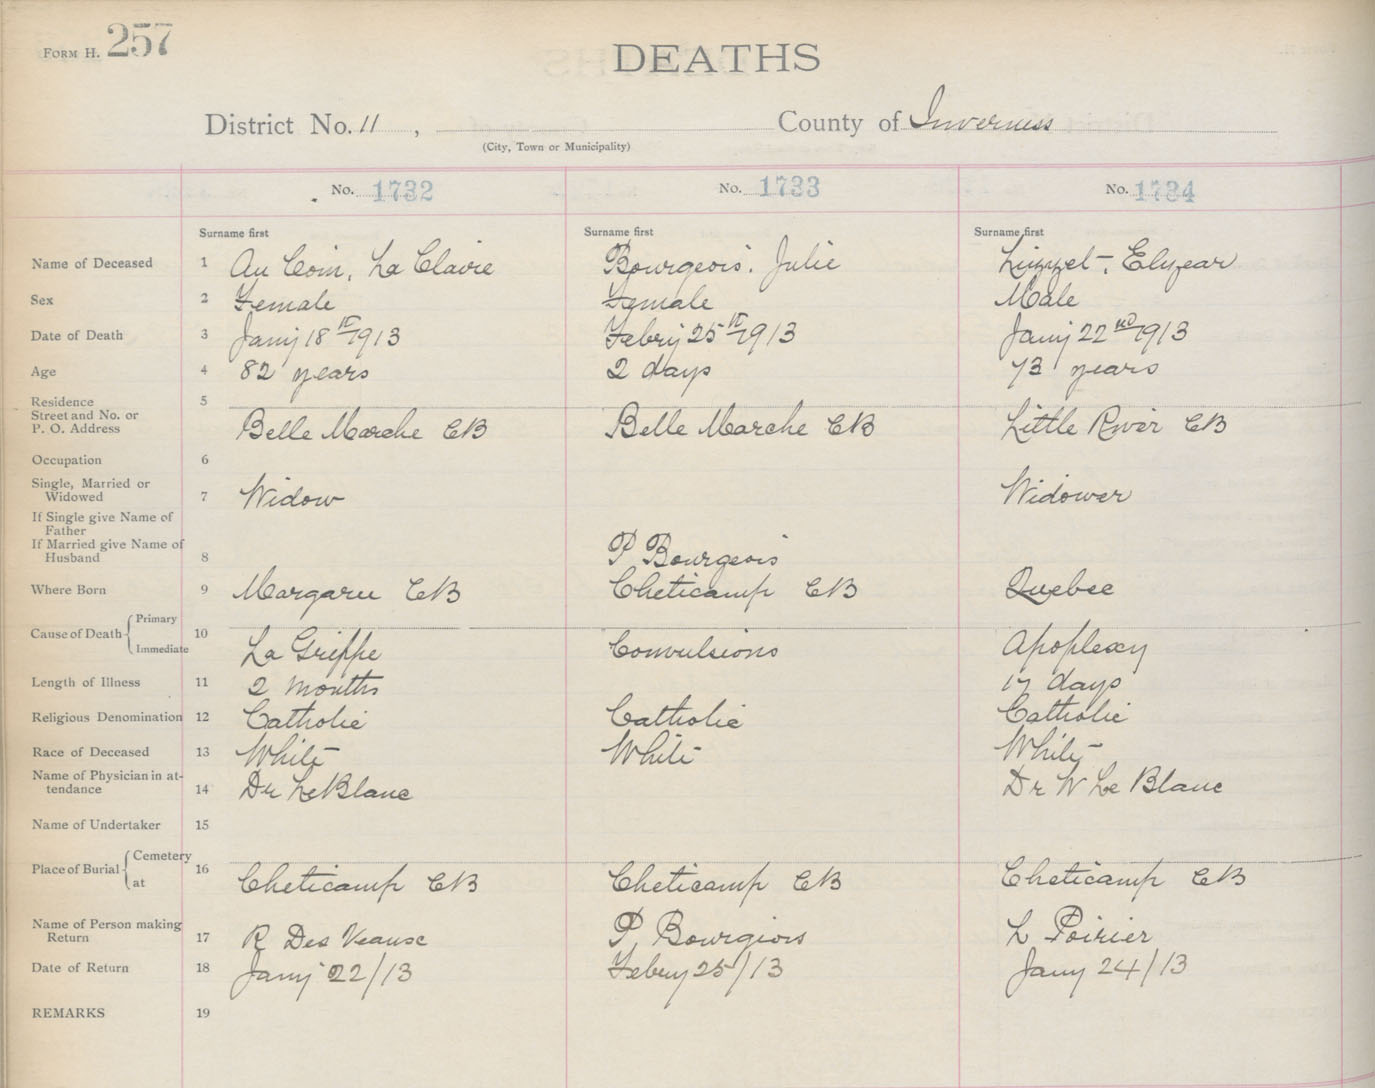 FORM H. 257
DEATHS
District No. 11 , County of Inverness
(City, Town or Municipality)
No. 1732 No. 1733 No. 1734
Surname first Surname first Surname first
Name of Deceased 1 Au Coin, La Claire Bourgeois, Julie Luzzet, Elyear
Sex 2 Female Female Male
Date of Death 3 Jany 18th 1913 Febry 25th 1913 Jany 22nd 1913
Age 4 82 years 2 days 73 years
Residence 5
Street and No. or
P. O. Address Belle Marche CB Belle Marche CB Little River CB
Occupation 6
Single, Married or
Widowed 7 Widow Widower
If Single give Name of
Father
If Married give Name of
Husband 8 P Bourgeois
Where Born 9 Margaree CB Cheticamp CB Quebec
Cause of Death Primary 10
Immediate La Grippe Convulsions Apoplexy
Length of Illness 11 2 months 17 days
Religious Denomination 12 Catholic Catholic Catholic
Race of Deceased 13 White White White
Name of Physician in at-
tendance 14 Dr LeBlanc Dr W Le Blanc
Name of Undertaker 15
Place of Burial Cemetery 16
at Cheticamp CB Cheticamp CB Cheticamp CB
Name of Person making
Return 17 R Des Veause P. Bourgeois L Poirier
Date of Return 18 Jany 22/13 Febry 25/13 Jany 24/13
REMARKS 19